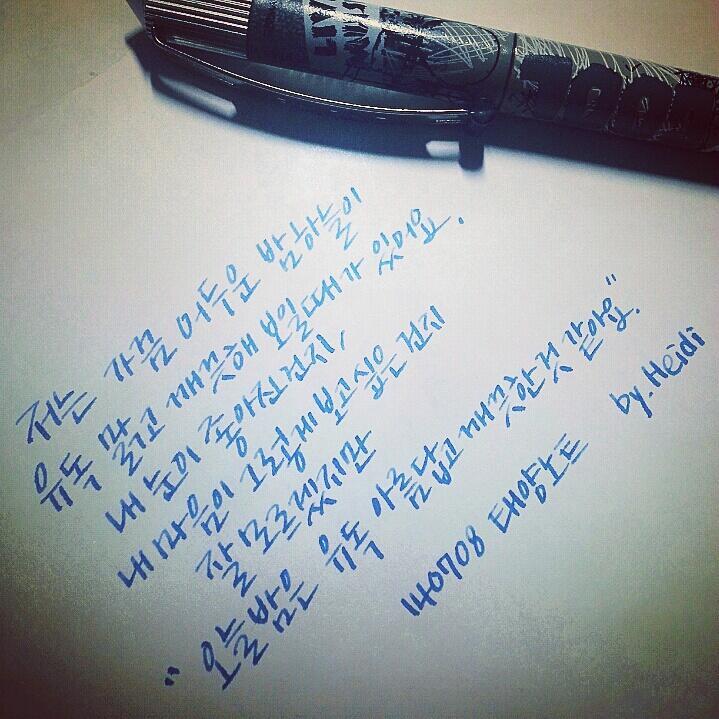 LIVE
저는 가끔 어두운 밤하늘이
유독 맑고 깨끗해 보일때가 있어요.
내 눈이 좋아진건지,
내 마음이 그렇게 보고싶은 건지
잘 모르겠지만
"오늘밤은 유독 아름답고 깨끗한것 같아요."
140708 태양노트 by.Heidi